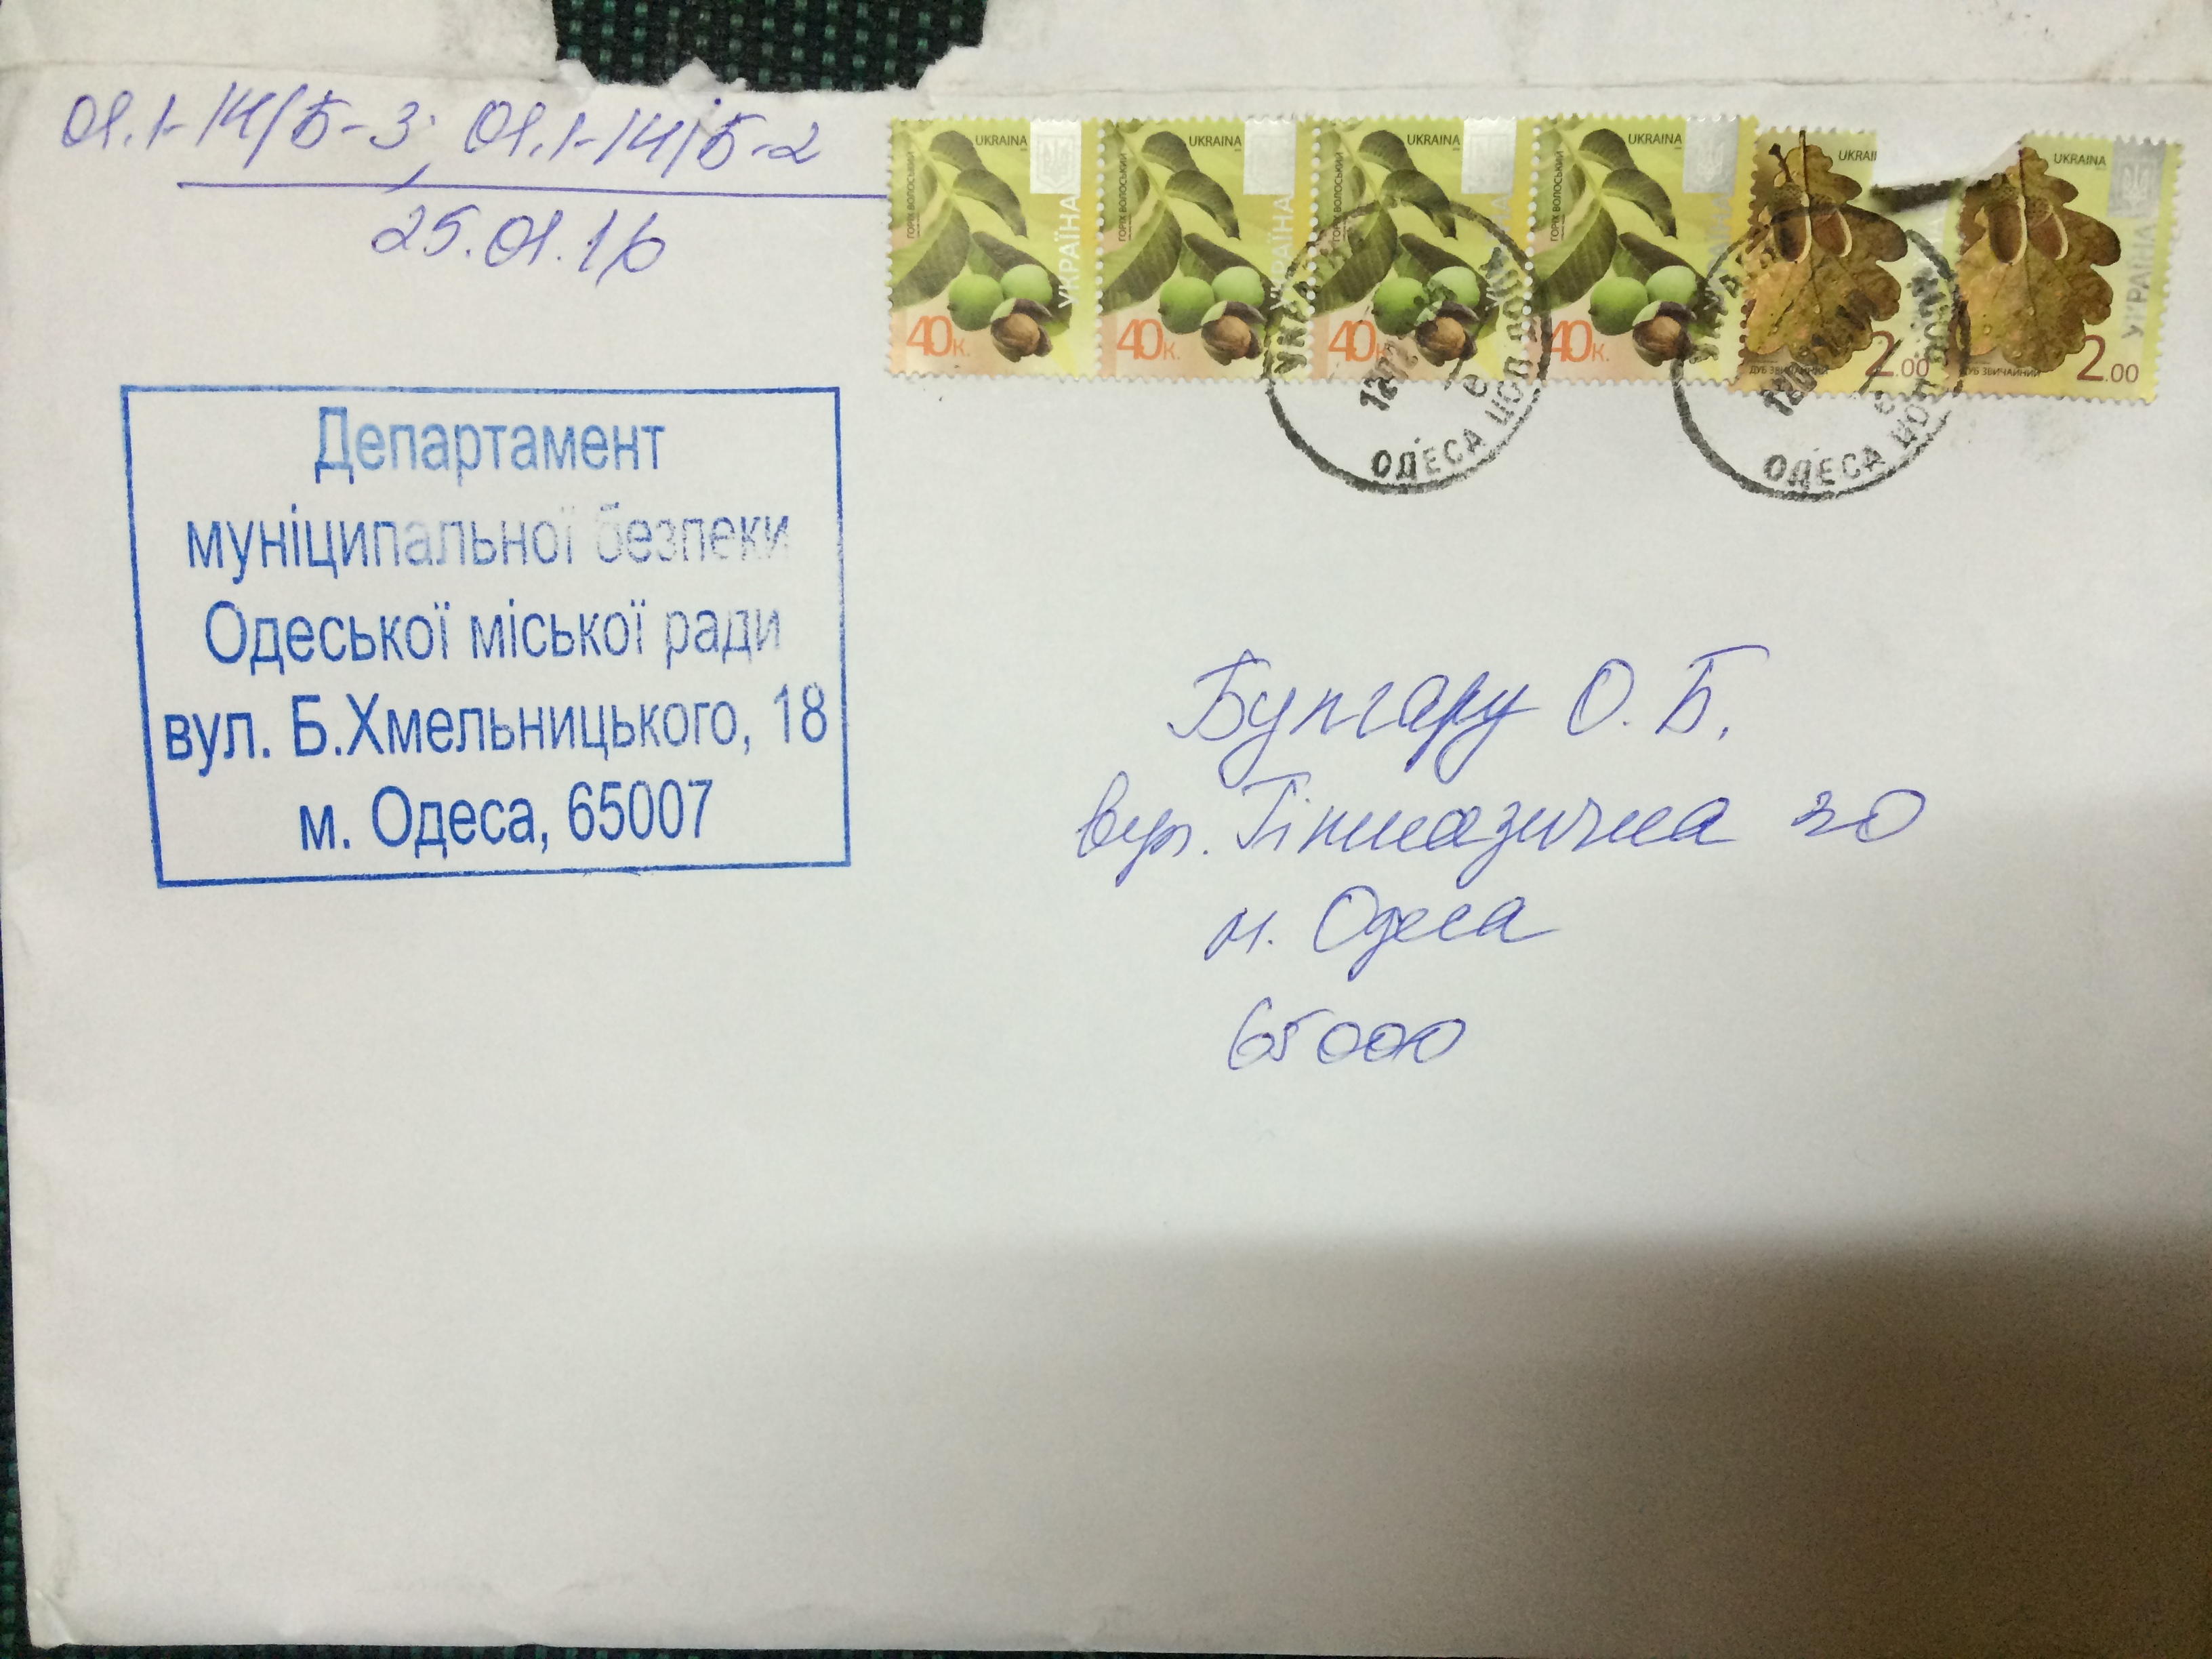 01.1-14/Б-3; 01.1-14/Б-2
25.01.16
UKRAINA УКРАЇНА ГОРІХ ВОЛОСЬКИЙ 40К.
UKRAINA УКРАЇНА ГОРІХ ВОЛОСЬКИЙ 40К.
UKRAINA УКРАЇНА ГОРІХ ВОЛОСЬКИЙ 40К.
UKRAINA УКРАЇНА ГОРІХ ВОЛОСЬКИЙ 40К.
UKRAI ДУБ ЗВИЧАЙНИЙ 2.00
UKRAINA УКРАЇНА ДУБ ЗВИЧАЙНИЙ 2.00
ОДЕСА
ОДЕСА
Департамент
муніципальної безпеки
Одеської міської ради
вул. Б.Хмельницького, 18
м. Одеса, 65007
Булгару О. Б.
вул. Гімназична
м. Одеса
65000